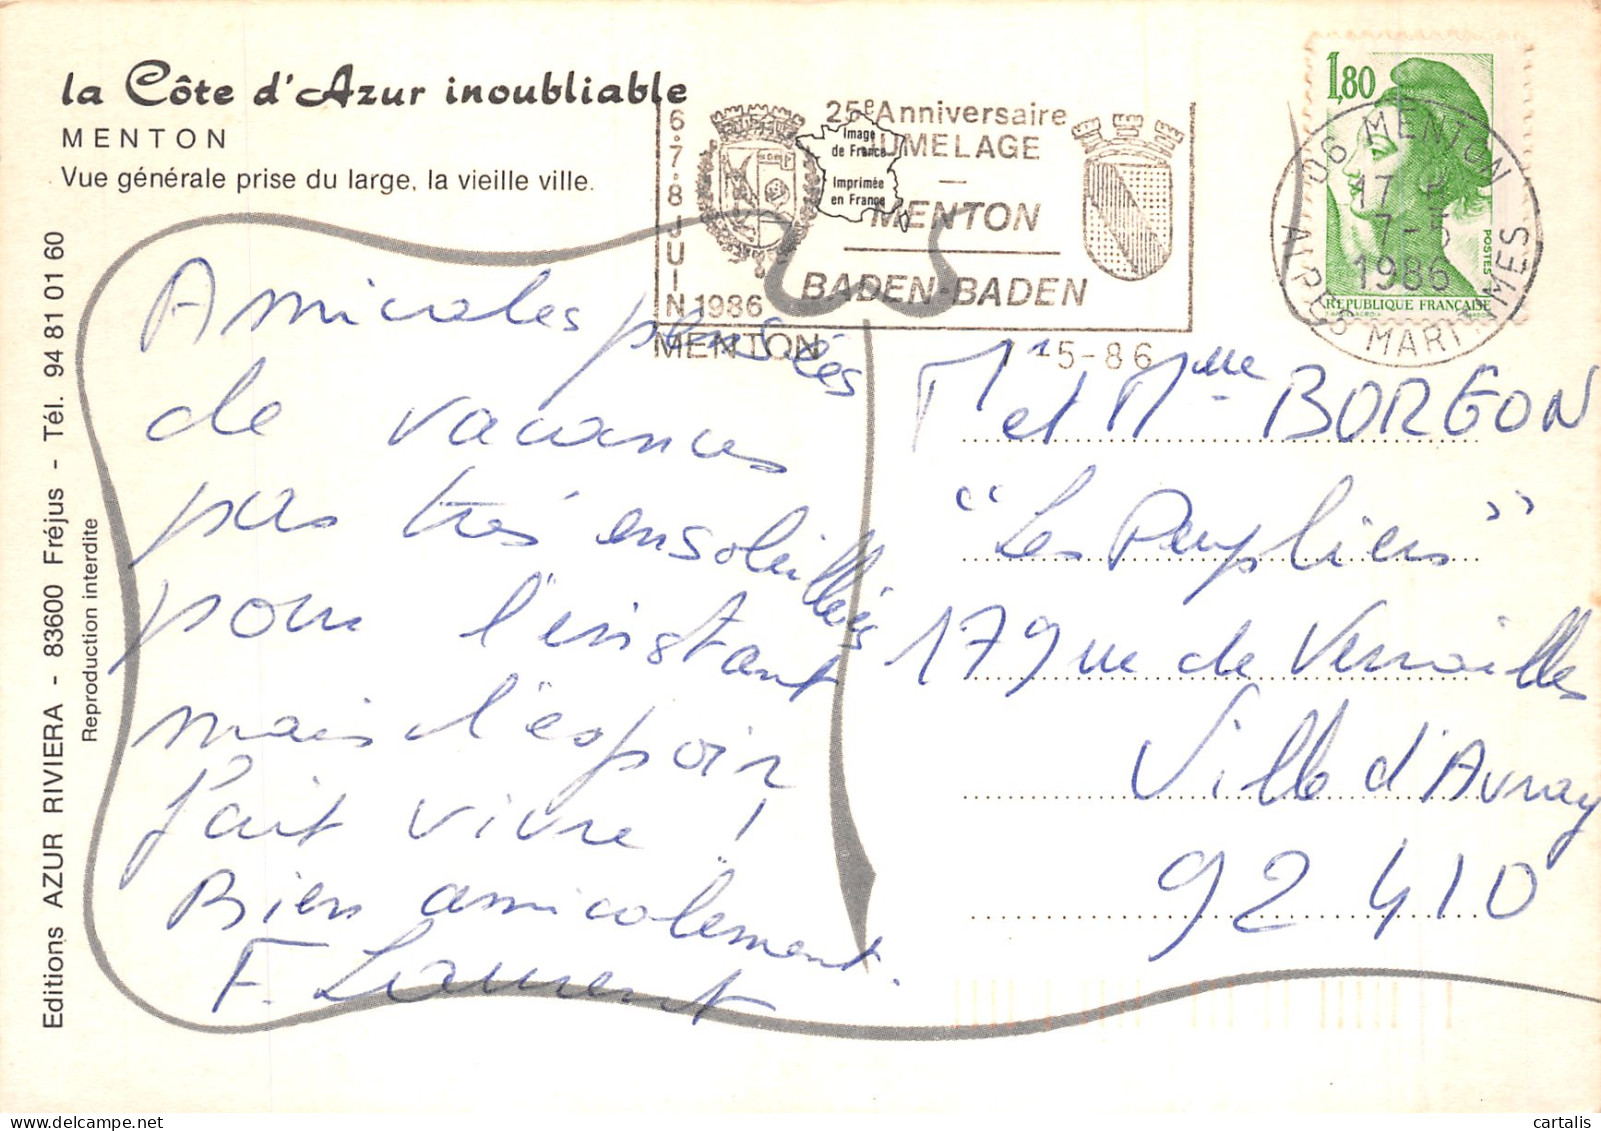 la Côte d'Azur inoubliable
MENTON
Vue générale prise du large, la vieille ville.
Editions AZUR RIVIERA - 83600 Fréjus - Tél. 94 81 01 60
Reproduction interdite
Image
de France
Imprimée
en France
6.7.8 JUIN 1986
25e Anniversaire
JUMELAGE
MENTON
BADEN-BADEN
MENTON
-5-86
1,80
POSTES
REPUBLIQUE FRANÇAISE
06 MENTON
17 H
7-5
1986
ALPES MARITIMES
Amicales pensées
de vacances
pas très ensoleillées
pour l'instant
mais l'espoir
fait vivre !
Bien amicalement.
F. Laurent
Mr et Mme BORGON
"Les Peupliers"
179 rue de Versailles
Ville d'Avray
92 410
cartalis
delcampe.net